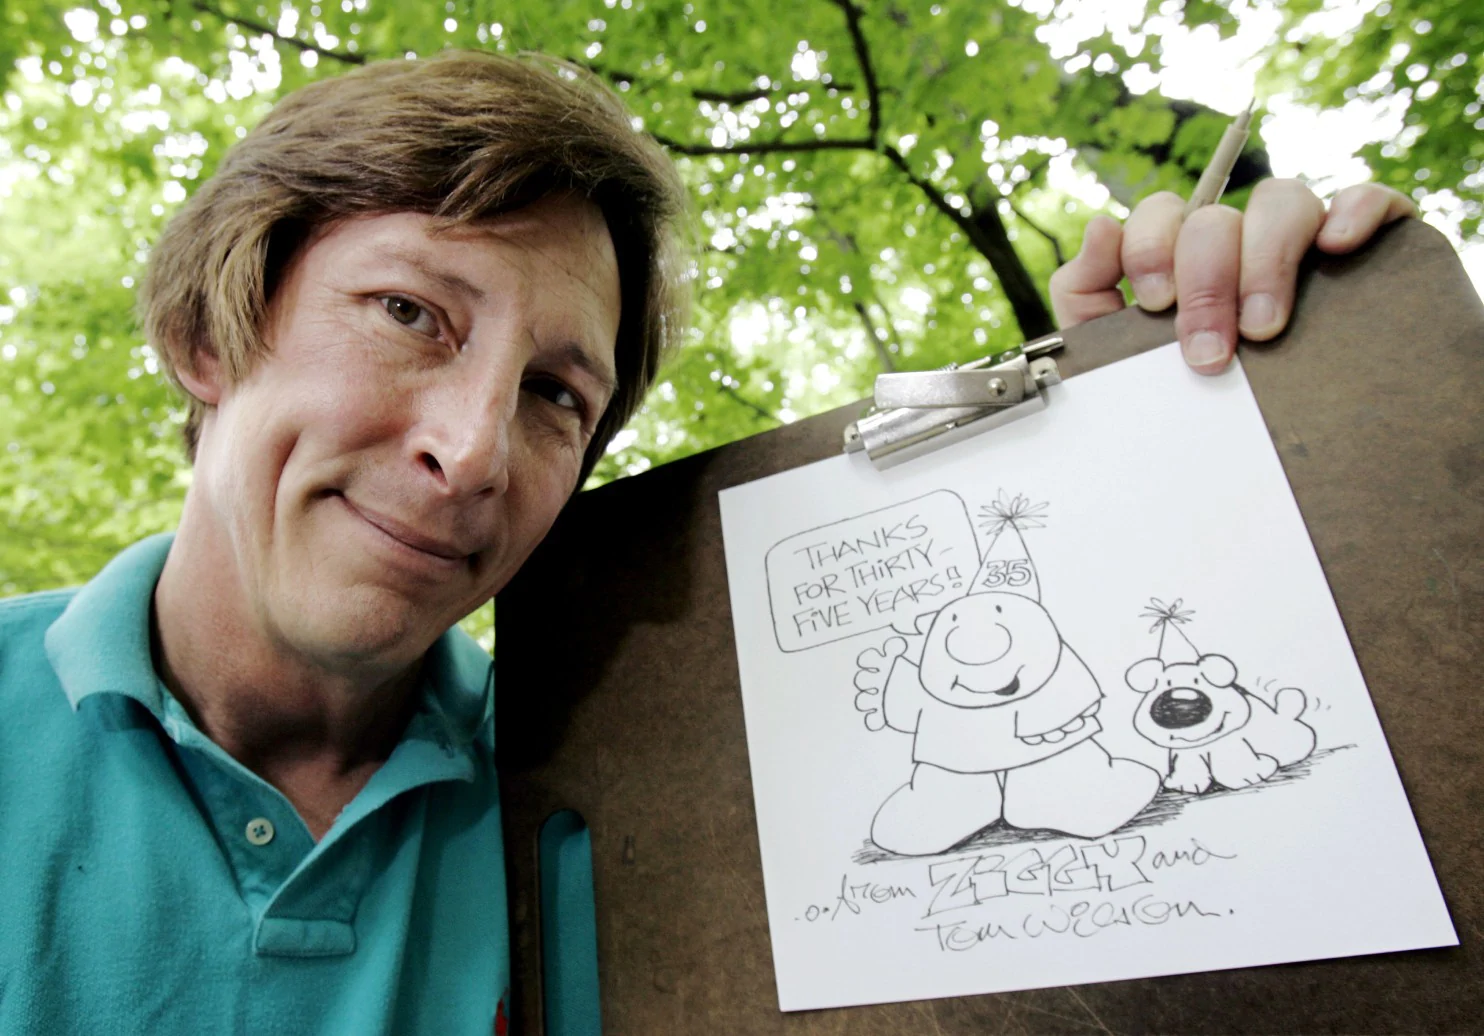 THANKS
FOR THIRTY-
FIVE YEARS!!
35
..o.from ZIGGY and
Tom Wilson.